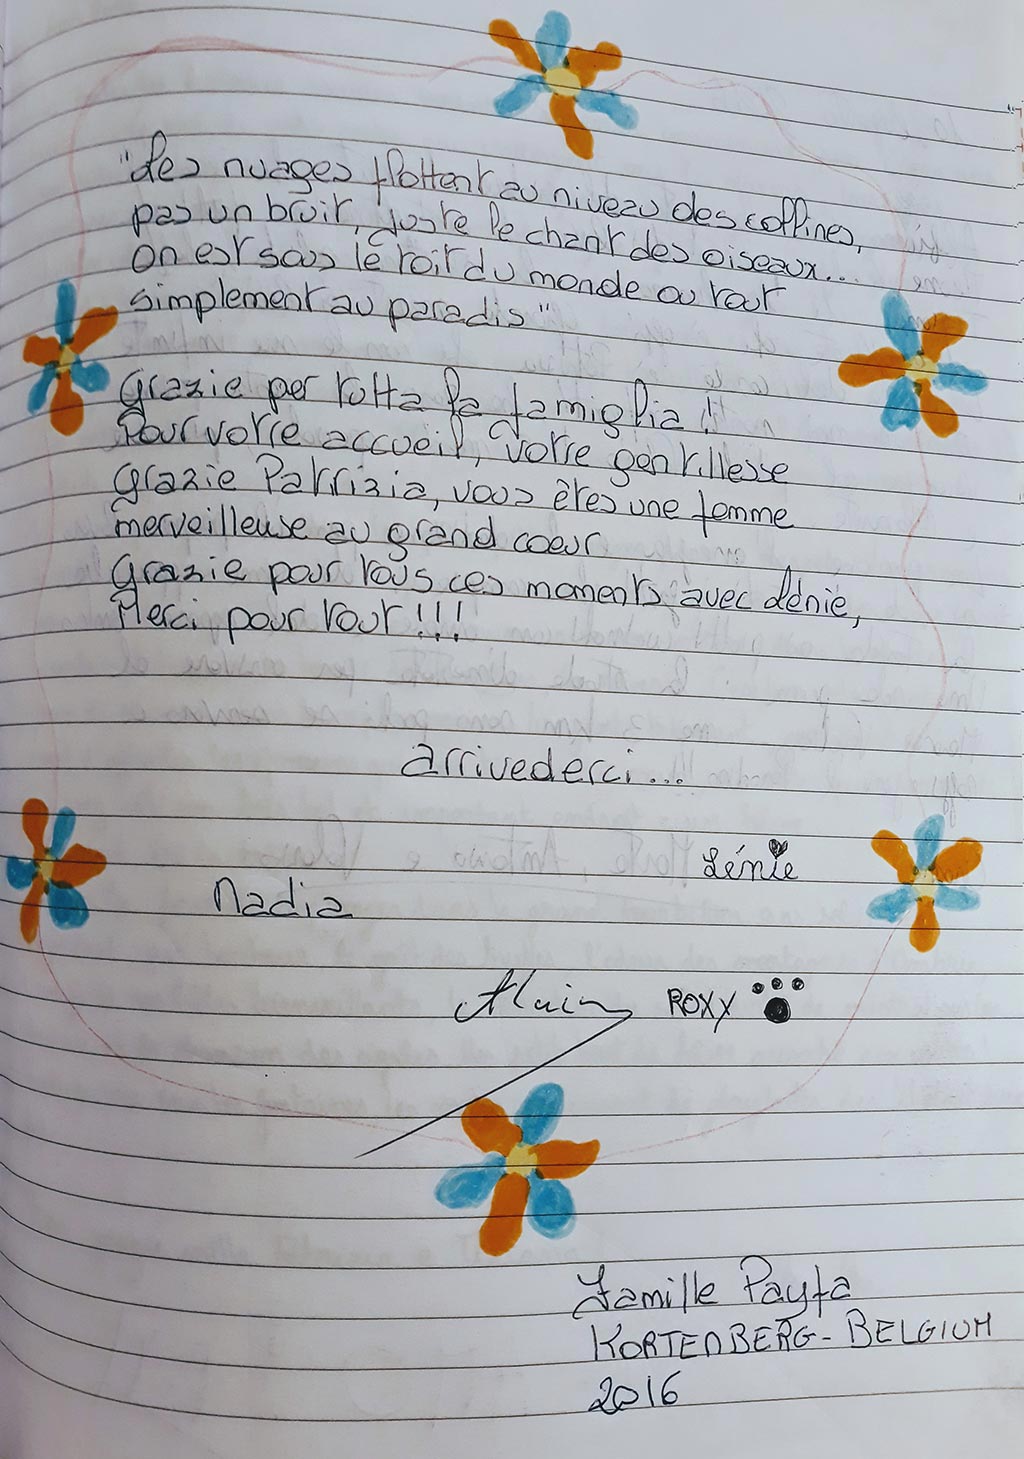 "Les nuages flottent au niveau des collines,
pas un bruit, juste le chant des oiseaux...
on est sous le toit du monde ou tout
simplement au paradis"
Grazie per tutta la famiglia !
Pour votre accueil, votre gentillesse
Grazie Patrizia, vous êtes une femme
merveilleuse au grand coeur
Grazie pour tous ces moments avec Lénie,
Merci pour tout !!!
arrivederci...
Lénie
Nadia
Alain ROXY
Famille Payfa
KORTENBERG - BELGIUM
2016